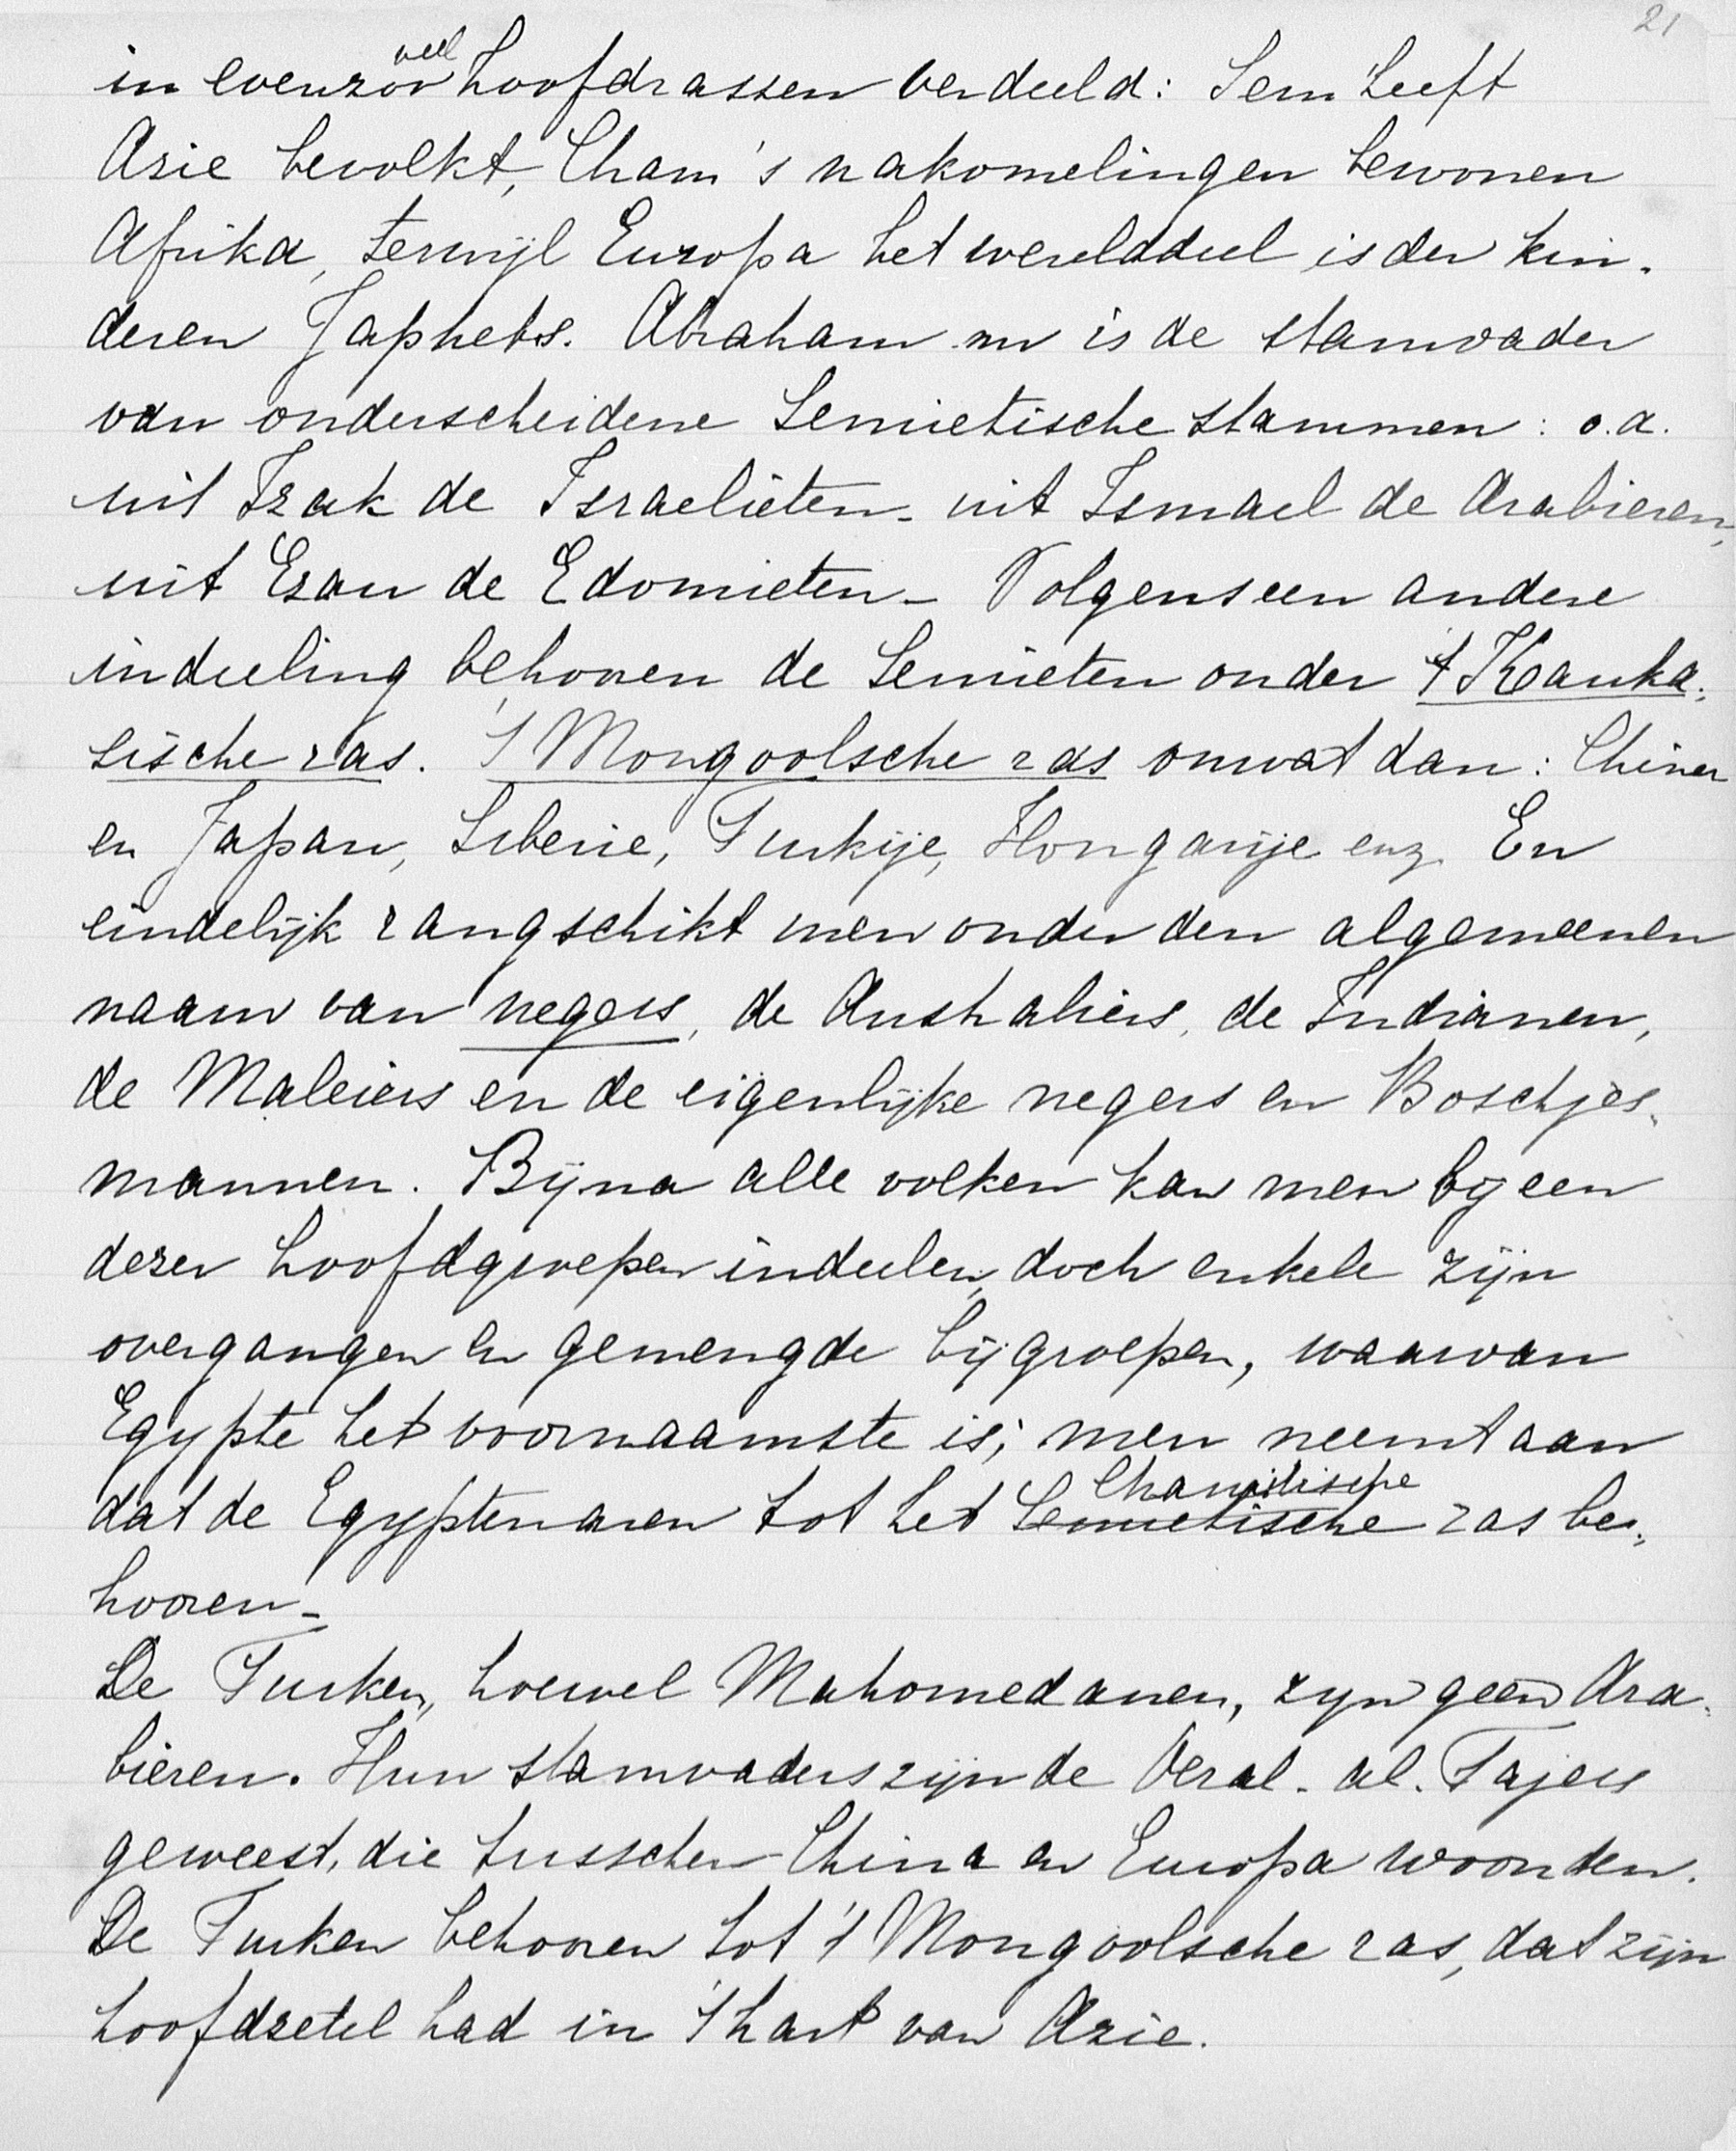 21
in evenzoo veel hoofdrassen verdeeld: Sem heeft
Azie bevolkt, Cham's nakomelingen bewonen
Afrika, terwijl Europa het werelddeel is der kin-
deren Japhets. Abraham nu is de stamvader
van onderscheidene Semietische stammen: o.a.
uit Izak de Israelieten - uit Ismael de Arabieren,
uit Esau de Edomieten - Volgens een andere
indeeling behooren de Semieten onder 't Kauka-
sische ras. 't Mongoolsche ras omvat dan: China
en Japan, Siberie, Turkije, Hongarije enz. En
eindelijk rangschikt men onder den algemeenen
naam van negers, de Australiers, de Indianen,
de Maleiers en de eigenlijke negers en Boschjes-
mannen. Bijna alle volken kan men bij een
dezer hoofdgroepen indeelen, doch enkele zijn
overgangen en gemengde bijgroepen, waarvan
Egypte het voornaamste is; men neemt aan
dat de Egyptenaren tot het Semietische Chamitische ras be-
hooren -
De Turken, hoewel Mahomedanen, zyn geen Ara-
bieren. Hun stamvaders zijn de Oeral-al-Tajers
geweest, die tusschen China en Europa woonden.
De Turken behooren tot 't Mongoolsche ras, dat zijn
hoofdzetel had in 't hart van Azie.